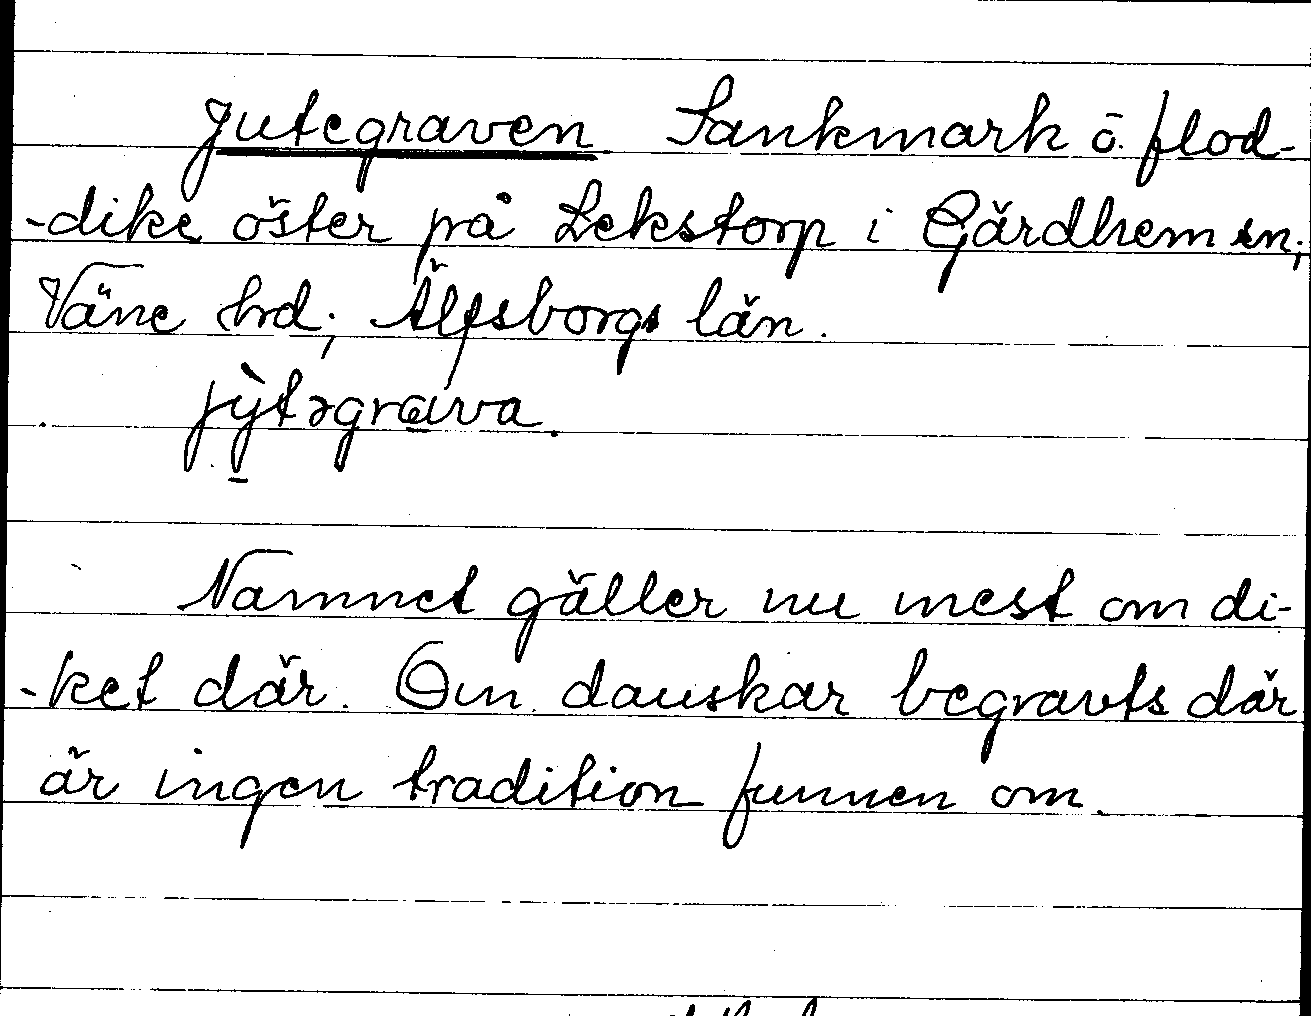 Jutegraven Sankmark ö. flod-
-dike öster på Lekstorp i Gärdhem sn;
Väne hrd; Älfsborgs län.
jy̠̆tәgra̠va.
Namnet gäller nu mest om di-
-ket där. Om danskar begravts där
är ingen tradition funnen om.